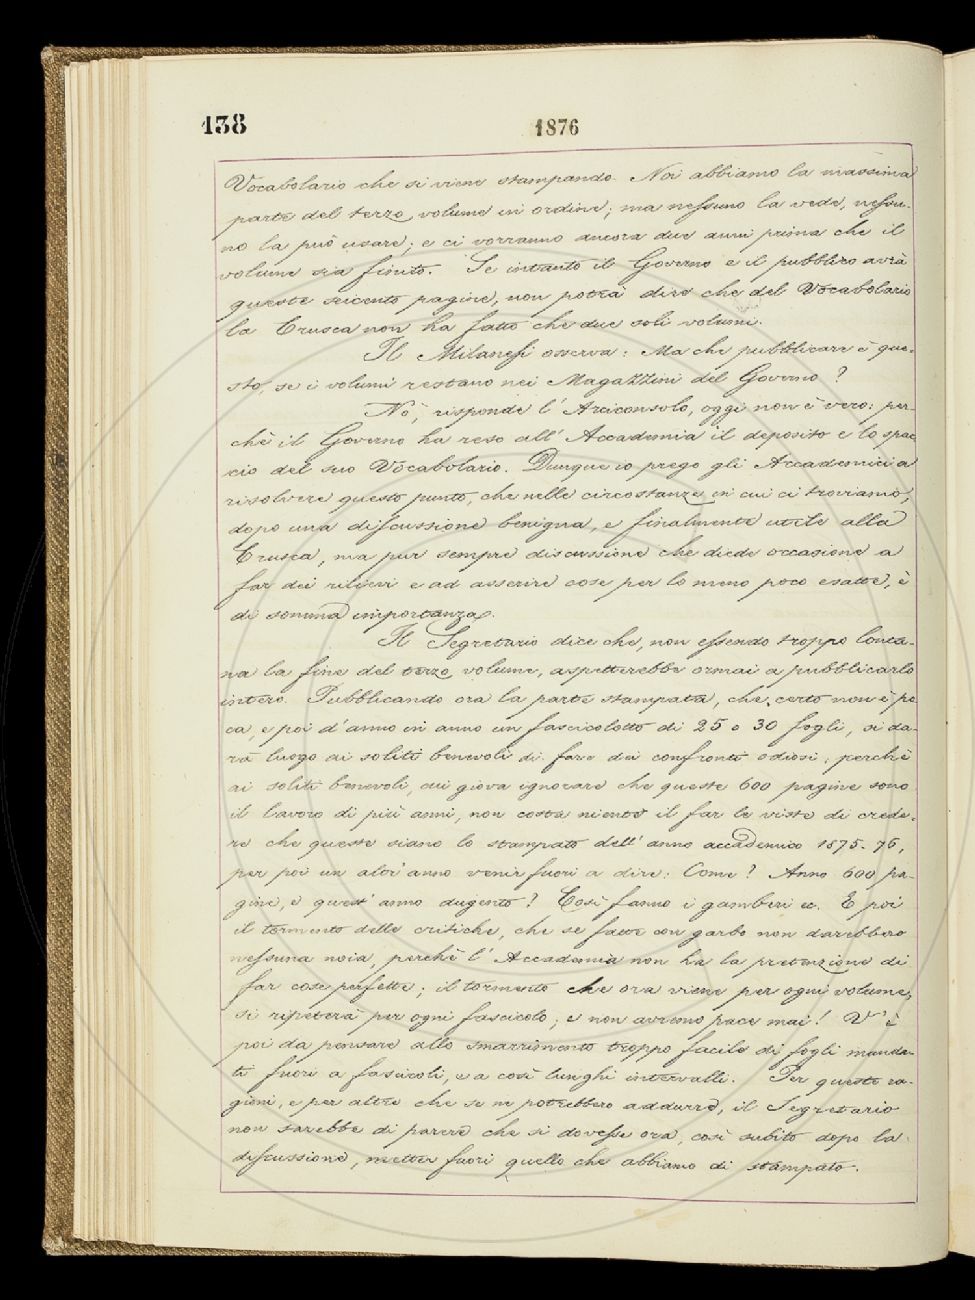 138
1876
Vocabolario che si viene stampando. Noi abbiamo la massima
parte del terzo volume in ordine; ma nessuno la vede, nessu-
no la può usare; e ci vorranno ancora due anni prima che il
volume sia finito. Se intanto il Governo e il pubblico avrà
queste seicento pagine, non potrà dire che del Vocabolario
la Crusca non ha fatto che due soli volumi.
Il Milanesi osserva: Ma che pubblicare è que-
sto, se i volumi restano nei Magazzini del Governo?
No, risponde l'Arciconsolo, oggi non è vero: per-
chè il Governo ha reso all'Accademia il deposito e lo spac-
cio del suo Vocabolario. Dunque io prego gli Accademici a
risolvere questo punto, che nelle circostanze in cui ci troviamo,
dopo una discussione benigna, e finalmente utile alla
Crusca, ma pur sempre discussione che diede occasione a
far dei rilievi e ad asserire cose per lo meno poco esatte, è
di somma importanza.
Il Segretario dice che, non essendo troppo lonta-
na la fine del terzo volume, aspetterebbe ormai a pubblicarlo
intero. Pubblicando ora la parte stampata, che certo non è po-
ca, e poi d'anno in anno un fascicolotto di 25 o 30 fogli, si da-
rà luogo ai soliti benevoli di fare dei confronti odiosi; perchè
ai soliti benevoli, cui giova ignorare che queste 600 pagine sono
il lavoro di più anni, non costa niente il far le viste di crede-
re che queste siano lo stampato dell'anno accademico 1875-76,
per poi un altr'anno venir fuori a dire: Come? Anno 600 pa-
gine, e quest'anno dugento? Così fanno i gamberi ec. E poi
il tormento delle critiche, che se fatte con garbo non darebbero
nessuna noia, perchè l'Accademia non ha la pretenzione di
far cose perfette; il tormento che ora viene per ogni volume,
si ripeterà per ogni fascicolo; e non avremo pace mai! V'è
poi da pensare allo smarrimento troppo facile di fogli manda-
ti fuori a fascicoli, e a così lunghi intervalli. Per queste ra-
gioni, e per altre che se ne potrebbero addurre, il Segretario
non sarebbe di parere che si dovesse ora, così subito dopo la
discussione, metter fuori quello che abbiamo di stampato.